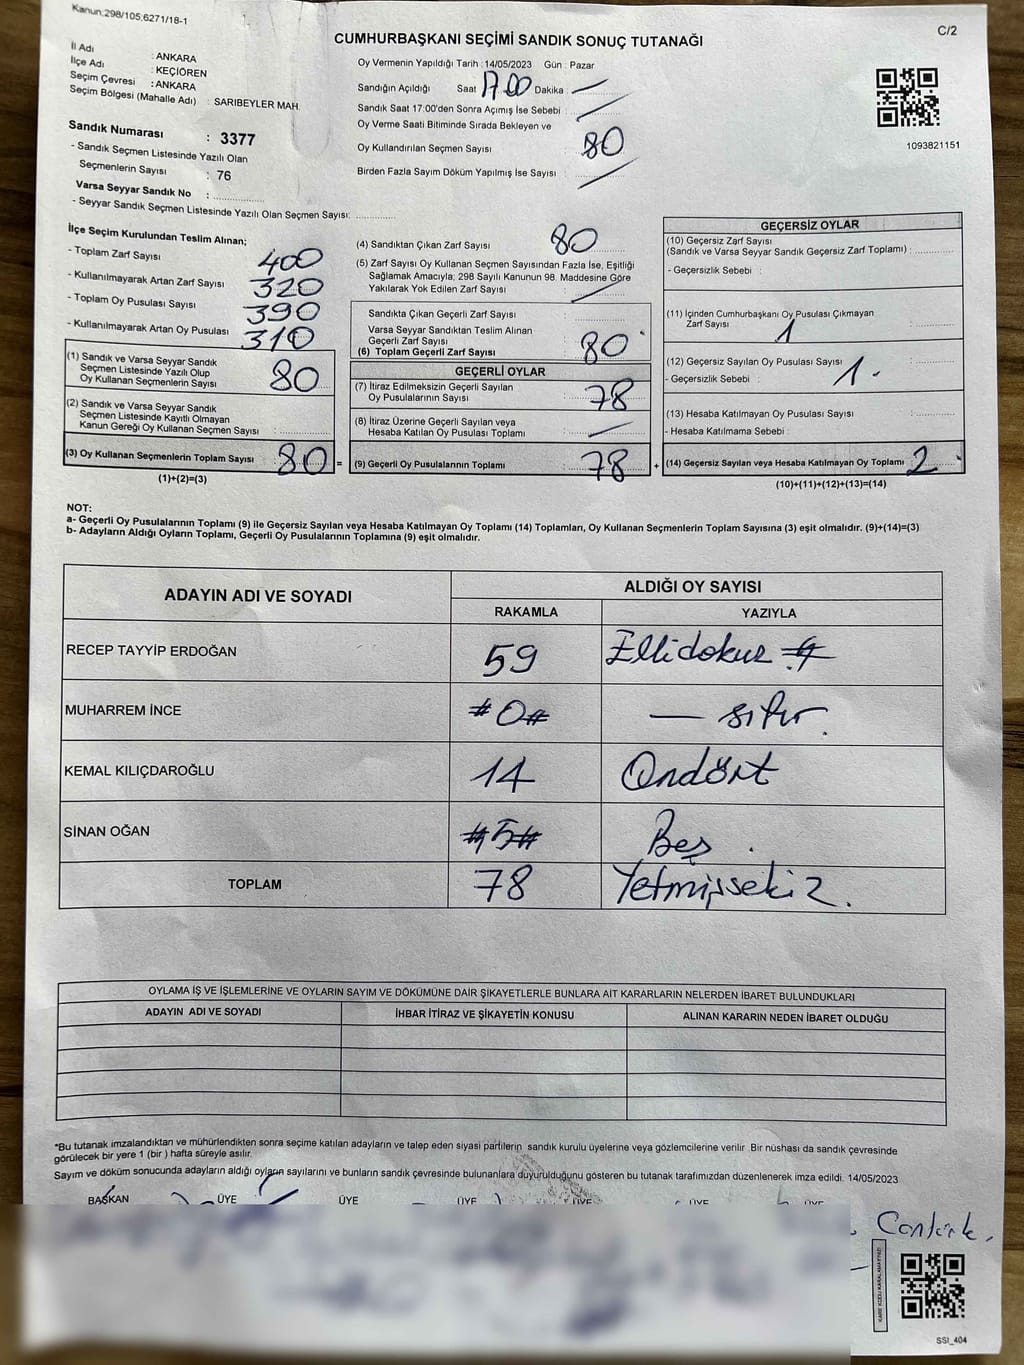 Kanun:298/105,6271/18-1
C/2
CUMHURBAŞKANI SEÇİMİ SANDIK SONUÇ TUTANAĞI
İl Adı : ANKARA
İlçe Adı : KEÇİÖREN
Seçim Çevresi : ANKARA
Seçim Bölgesi (Mahalle Adı) : SARIBEYLER MAH.
Sandık Numarası : 3377
- Sandık Seçmen Listesinde Yazılı Olan
Seçmenlerin Sayısı : 76
Varsa Seyyar Sandık No : ..............
- Seyyar Sandık Seçmen Listesinde Yazılı Olan Seçmen Sayısı: ............
Oy Vermenin Yapıldığı Tarih : 14/05/2023 Gün : Pazar
Sandığın Açıldığı Saat 17.00 Dakika : —
Sandık Saat 17:00'den Sonra Açımış İse Sebebi : —
Oy Verme Saati Bitiminde Sırada Bekleyen ve
Oy Kullandırılan Seçmen Sayısı : 80
Birden Fazla Sayım Döküm Yapılmış İse Sayısı : —
1093821151
İlçe Seçim Kurulundan Teslim Alınan;
- Toplam Zarf Sayısı 400
- Kullanılmayarak Artan Zarf Sayısı 320
- Toplam Oy Pusulası Sayısı 390
- Kullanılmayarak Artan Oy Pusulası 310
(1) Sandık ve Varsa Seyyar Sandık
Seçmen Listesinde Yazılı Olup
Oy Kullanan Seçmenlerin Sayısı 80
(2) Sandık ve Varsa Seyyar Sandık
Seçmen Listesinde Kayıtlı Olmayan
Kanun Gereği Oy Kullanan Seçmen Sayısı
(3) Oy Kullanan Seçmenlerin Toplam Sayısı : 80 =
(1)+(2)=(3)
(4) Sandıktan Çıkan Zarf Sayısı 80
(5) Zarf Sayısı Oy Kullanan Seçmen Sayısından Fazla İse, Eşitliği
Sağlamak Amacıyla; 298 Sayılı Kanunun 98. Maddesine Göre
Yakılarak Yok Edilen Zarf Sayısı : —
Sandıkta Çıkan Geçerli Zarf Sayısı :
Varsa Seyyar Sandıktan Teslim Alınan
Geçerli Zarf Sayısı :
(6) Toplam Geçerli Zarf Sayısı : 80
GEÇERLİ OYLAR
(7) İtiraz Edilmeksizin Geçerli Sayılan
Oy Pusulalarının Sayısı : 78
(8) İtiraz Üzerine Geçerli Sayılan veya
Hesaba Katılan Oy Pusulası Toplamı : —
(9) Geçerli Oy Pusulalarının Toplamı : 78 +
GEÇERSİZ OYLAR
(10) Geçersiz Zarf Sayısı
(Sandık ve Varsa Seyyar Sandık Geçersiz Zarf Toplamı) :
- Geçersizlik Sebebi :
(11) İçinden Cumhurbaşkanı Oy Pusulası Çıkmayan
Zarf Sayısı 1
(12) Geçersiz Sayılan Oy Pusulası Sayısı : 1
- Geçersizlik Sebebi :
(13) Hesaba Katılmayan Oy Pusulası Sayısı :
- Hesaba Katılmama Sebebi :
(14) Geçersiz Sayılan veya Hesaba Katılmayan Oy Toplamı : 2
(10)+(11)+(12)+(13)=(14)
NOT:
a- Geçerli Oy Pusulalarının Toplamı (9) ile Geçersiz Sayılan veya Hesaba Katılmayan Oy Toplamı (14) Toplamları, Oy Kullanan Seçmenlerin Toplam Sayısına (3) eşit olmalıdır. (9)+(14)=(3)
b- Adayların Aldığı Oyların Toplamı, Geçerli Oy Pusulalarının Toplamına (9) eşit olmalıdır.
ADAYIN ADI VE SOYADI ALDIĞI OY SAYISI
RAKAMLA YAZIYLA
RECEP TAYYİP ERDOĞAN 59 Ellidokuz #
MUHARREM İNCE #0# — sıfır.
KEMAL KILIÇDAROĞLU 14 Ondört
SİNAN OĞAN #5# Beş .
TOPLAM 78 Yetmişsekiz.
OYLAMA İŞ VE İŞLEMLERİNE VE OYLARIN SAYIM VE DÖKÜMÜNE DAİR ŞİKAYETLERLE BUNLARA AİT KARARLARIN NELERDEN İBARET BULUNDUKLARI
ADAYIN ADI VE SOYADI İHBAR İTİRAZ VE ŞİKAYETİN KONUSU ALINAN KARARIN NEDEN İBARET OLDUĞU
*Bu tutanak imzalandıktan ve mühürlendikten sonra seçime katılan adayların ve talep eden siyasi partilerin sandık kurulu üyelerine veya gözlemcilerine verilir Bir nüshası da sandık çevresinde
görülecek bir yere 1 (bir ) hafta süreyle asılır.
Sayım ve döküm sonucunda adayların aldığı oyların sayılarını ve bunların sandık çevresinde bulunanlara duyurulduğunu gösteren bu tutanak tarafımızdan düzenlenerek imza edildi. 14/05/2023
BAŞKAN ÜYE ÜYE ÜYE ÜYE ÜYE ÜYE
KARE KODU KARALAMAYINIZ!
SSI_404